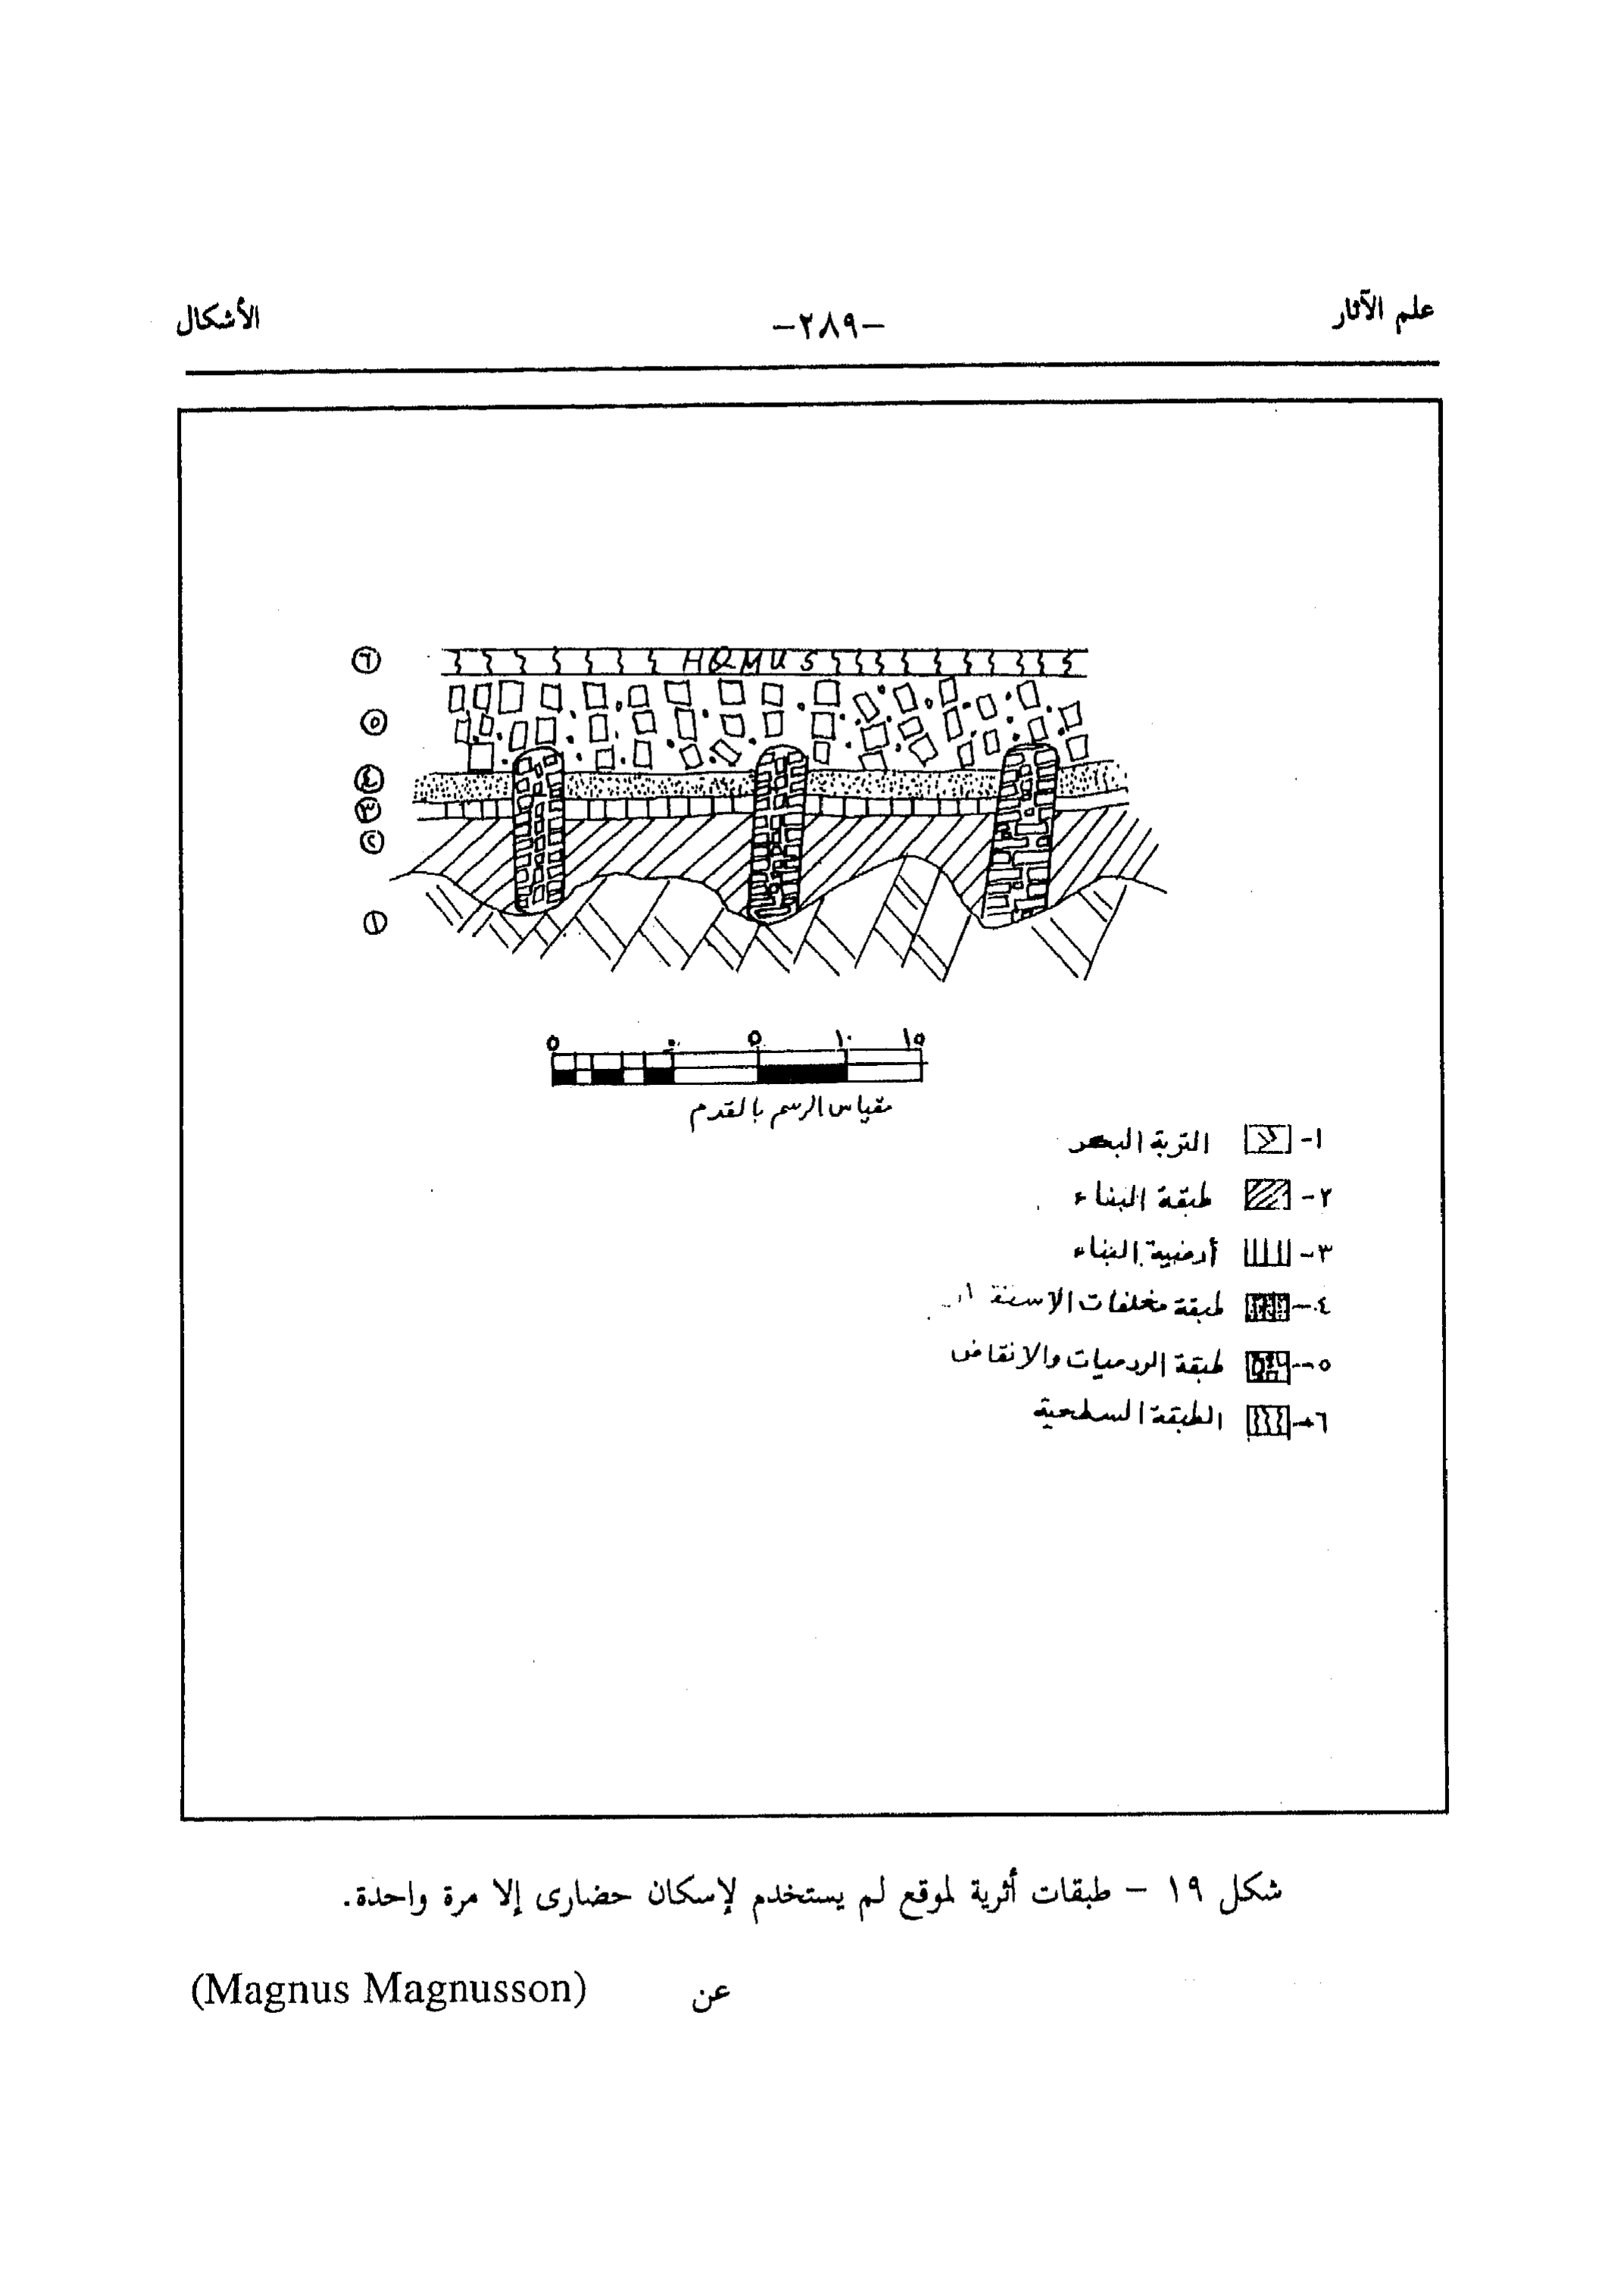 علم الآثار
-٢٨٩-
الأشكال
٦
HQMUS
٥
٤
٣
٢
١
٥ ٠ ٥ ١٠ ١٥
مقياس الرسم بالقدم
١- التربة البكر
٢- طبقة البناء
٣- أرضية البناء
٤- طبقة مخلفات
٥- طبقة الرديمات والانقاض
٦- الطبقة السطحية
شكل ١٩ – طبقات أثرية لموقع لم يستخدم لإسكان حضارى إلا مرة واحدة.
عن (Magnus Magnusson)